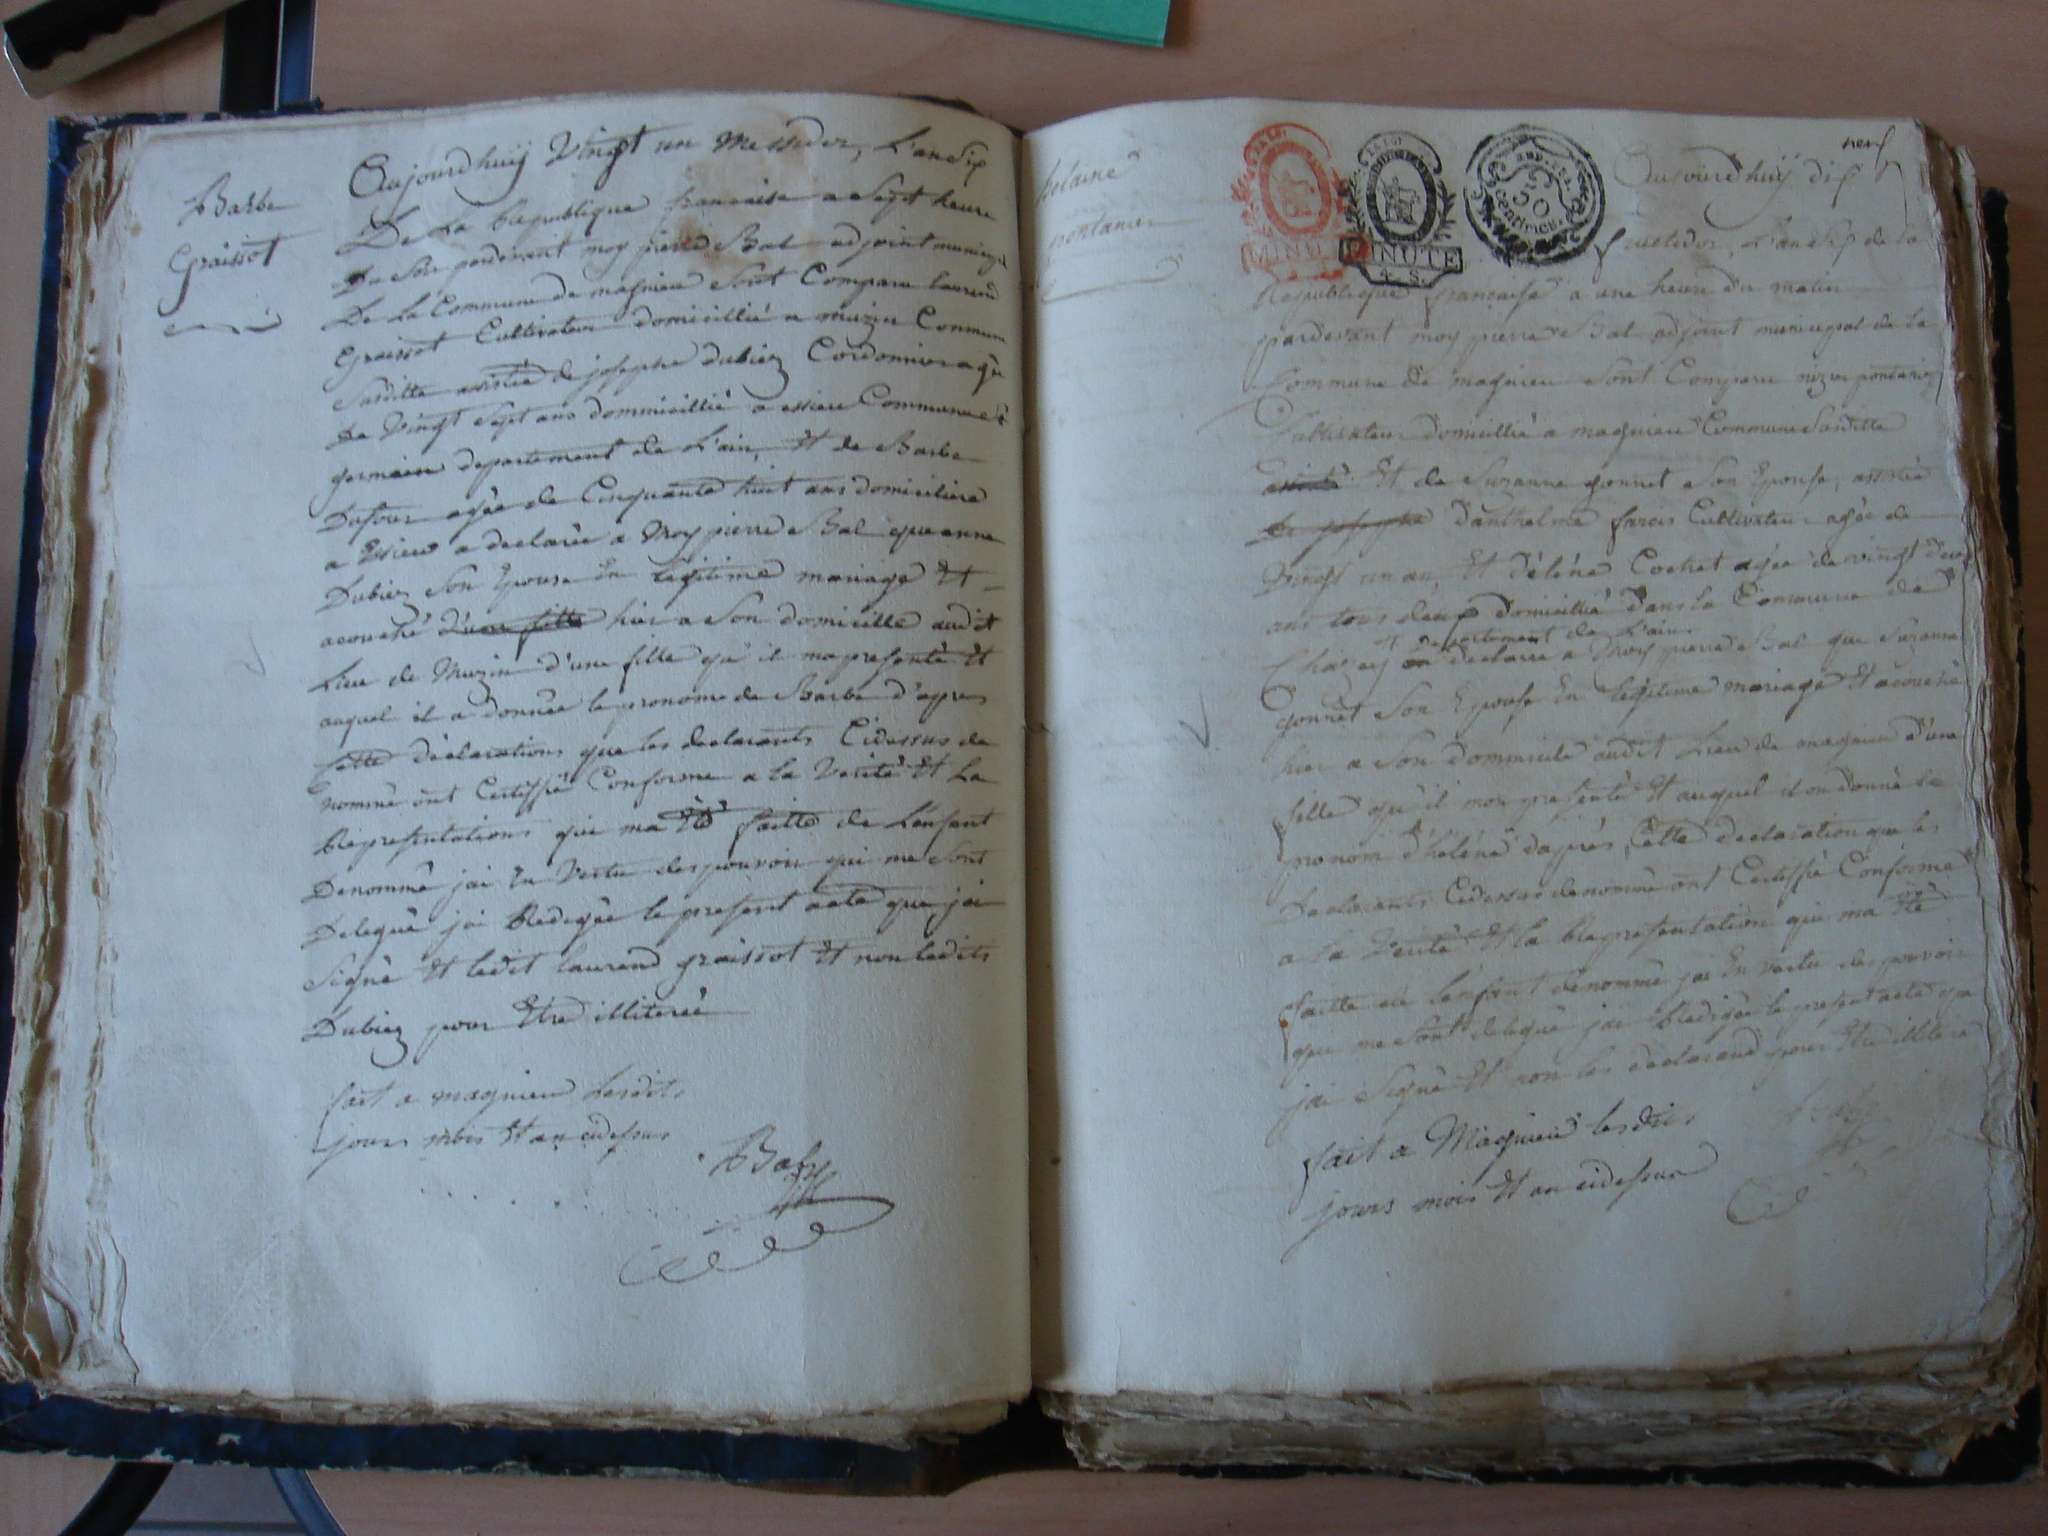 Barbe
Graissot
Aujourdhuij Vingt un Messidor, L'an dix
De La Republique francaise a Sept heure
Du Soir pardevant moy pierre Bal adjoint municipal
De La Commune de magnieu Sont Comparu laurend
Graissot Cultivateur domicillié a muzin Commune
Susditte assistée de josephe dubiez Cordonnier agée
De Vingt Sept ans dommicillié a essieu Commune
germain departement de L'ain, Et de Barbe
Dufour agée de Cinquante huit ans domiciliere
a Essieu a declarée a Moy pierre Bal que anne
Dubiez Son Epouse En legitime mariage Et
acouché d'une fille hier a Son domicille audit
Lieu de Muzin d'une fille qu'il ma presenté Et
auquel il a donnée le pronome de Barbe d'apres
Cette déclarations que les declarants Cidessus de
nommé ont Certiffié Conforme a la Verité Et La
Representations qui ma Eté faitte de L'enfant
Denommé jai En Vertu des pouvoir qui me Sont
Delegué jai Redigée le present acte que jai
Signé Et ledit laurend graissot Et non ledits
Dubiez pour Etre illiterée
fait a magnieu Lesdits
jours mois Et an cidessus
Bal
helaine
pontanier
MINUTE
MINUTE
4. S.
50
centimes
neuf
Aujourdhuij dix
fructidor, L'an dix de la
Republique francaise a une heure du matin
pardevant moy pierre Bal adjoint municipal de la
Commune De magnieu Sont Comparu
Cultivateur domicillié a magnieu Commune Susditte
Et de Suzanne gonnet Son Epouse, assistée
de josephe D'anthelme farcis Cultivateur agée de
Vingt un an, Et d'éléne Cochet agée de vingt deux
ans tous deux domicillié dans la Commune de
departement de L'ain
Chazey declarée a Moy pierre Bal que Suzanne
gonnet Son Epouse En legitime mariage Et acouché
hier a Son dommicile audit Lieu de magnieu d'une
fille qu'il mon presenté Et auquel il on donné le
pronom d'héléne d'aprés Cette declaration que les
Declarants Cidessus denommé ont Certiffié Conforme
a la Verité Et la Representation qui ma Eté
faitte de L'enfant denommé jai En vertu des pouvoir
qui me Sont delegué jai Redigée le present acte que
jai Signé Et non les declarand pour Etre illiteré
fait a Magnieu lesdits
jours mois Et an cidessus
Bal